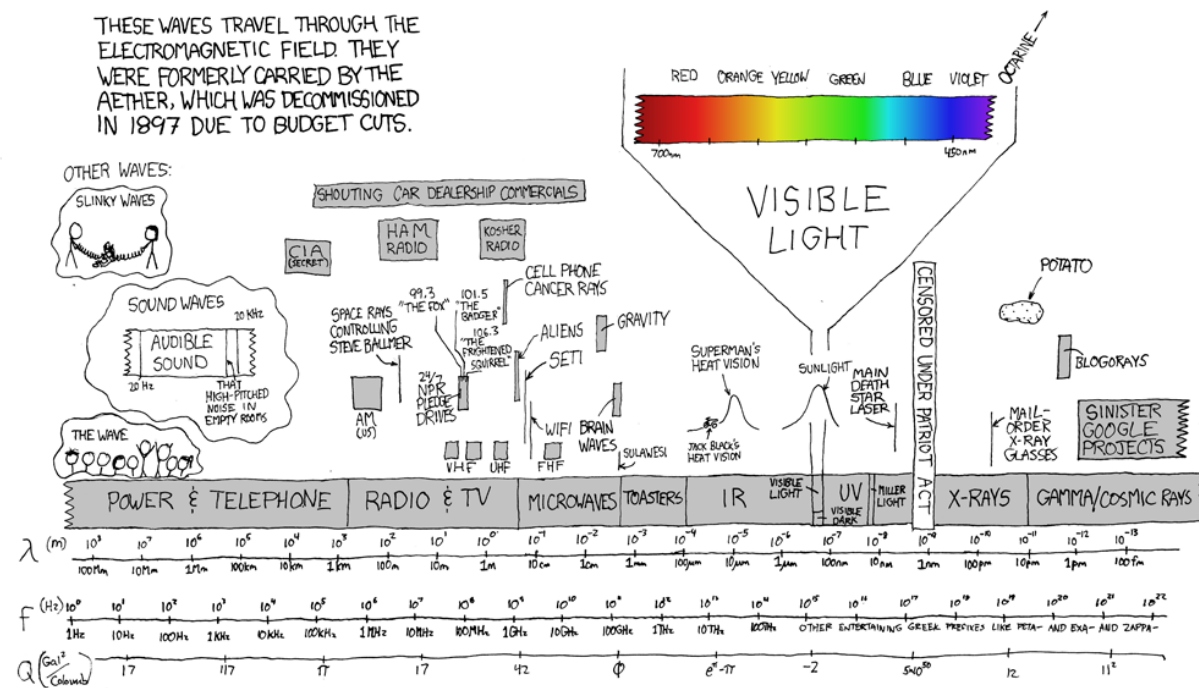 THESE WAVES TRAVEL THROUGH THE
ELECTROMAGNETIC FIELD. THEY
WERE FORMERLY CARRIED BY THE
AETHER, WHICH WAS DECOMMISSIONED
IN 1897 DUE TO BUDGET CUTS.
OCTARINE
RED ORANGE YELLOW GREEN BLUE VIOLET
700nm 450nm
VISIBLE
LIGHT
OTHER WAVES:
SLINKY WAVES
SOUND WAVES
20 KHz
AUDIBLE
SOUND
20 Hz
THAT
HIGH-PITCHED
NOISE IN
EMPTY ROOMS
THE WAVE
SHOUTING CAR DEALERSHIP COMMERCIALS
CIA
(SECRET)
HAM
RADIO
KOSHER
RADIO
CELL PHONE
CANCER RAYS
SPACE RAYS
CONTROLLING
STEVE BALLMER
99.3
"THE FOX"
101.5
"THE
BADGER"
106.3
"THE
FRIGHTENED
SQUIRREL"
ALIENS
SETI
GRAVITY
AM
(US)
24/7
NPR
PLEDGE
DRIVES
WIFI
BRAIN
WAVES
SULAWESI
VHF
UHF
FHF
SUPERMAN'S
HEAT VISION
JACK BLACK'S
HEAT VISION
SUNLIGHT
MAIN
DEATH
STAR
LASER
CENSORED UNDER PATRIOT ACT
POTATO
BLOGORAYS
MAIL-
ORDER
X-RAY
GLASSES
SINISTER
GOOGLE
PROJECTS
POWER & TELEPHONE
RADIO & TV
MICROWAVES
TOASTERS
IR
VISIBLE
LIGHT
UV
VISIBLE
DARK
MILLER
LIGHT
X-RAYS
GAMMA/COSMIC RAYS
λ (m)
10⁷ 10⁶ 10⁵ 10⁴ 10³ 10² 10¹ 10⁰ 10⁻¹ 10⁻² 10⁻³ 10⁻⁴ 10⁻⁵ 10⁻⁶ 10⁻⁷ 10⁻⁸ 10⁻⁹ 10⁻¹⁰ 10⁻¹¹ 10⁻¹² 10⁻¹³
100Mm 10Mm 1Mm 100km 10km 1km 100m 10m 1m 10cm 1cm 1mm 100μm 10μm 1μm 100nm 10nm 1nm 100pm 10pm 1pm 100fm
f (Hz)
10⁰ 10¹ 10² 10³ 10⁴ 10⁵ 10⁶ 10⁷ 10⁸ 10⁹ 10¹⁰ 10¹² 10¹³ 10¹⁴ 10¹⁵ 10¹⁶ 10¹⁷ 10¹⁸ 10¹⁹ 10²⁰ 10²¹ 10²²
1Hz 10Hz 100Hz 1KHz 10KHz 100KHz 1MHz 10MHz 100MHz 1GHz 10GHz 100GHz 1THz 10THz 100THz OTHER ENTERTAINING GREEK PREFIXES LIKE PETA- AND EXA- AND ZAPPA-
Q (Gal²/Coloumb)
17 117 π 17 42 Φ e^π-π -2 540⁵⁰ 12 11²